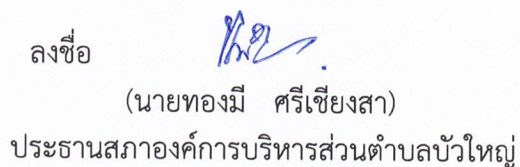 ลงชื่อ
(นายทองมี ศรีเชียงสา)
ประธานสภาองค์การบริหารส่วนตำบลบัวใหญ่